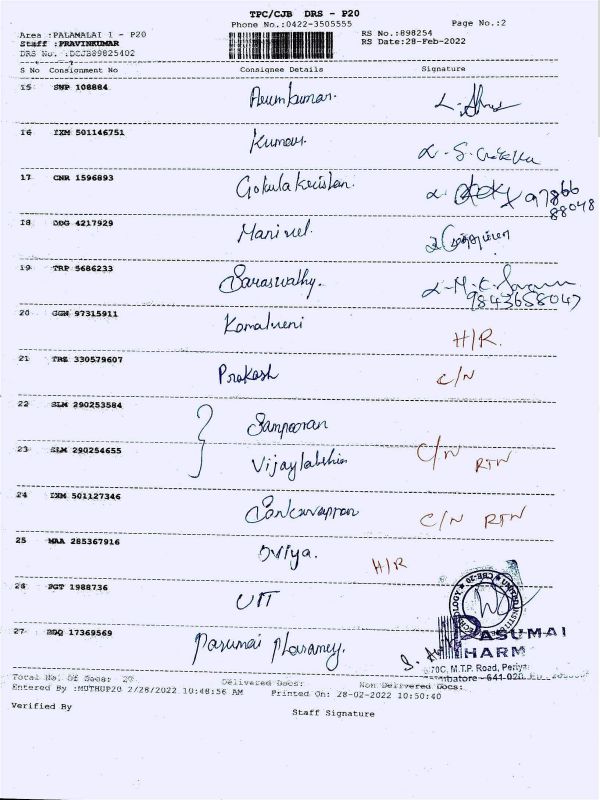 TPC/CJB DRS - P20
Phone No.:0422-3505555 Page No.:2
Area :PALAMALAI 1 - P20 RS No.:898254
Staff :PRAVINKUMAR RS Date:28-Feb-2022
DRS No. :DCJB89825402
S No Consignment No Consignee Details Signature
15 SNP 108884 Arunkumar.
16 IXM 501146751 Kumar.
17 CNR 1596893 Gokulakrishnan. 97866
88048
18 DDG 4217929 Marivel.
19 TRP 5686233 Saraswathy.
9843658047
20 GGN 97315911 Komalveni H/R.
21 TRZ 330579607 Prakash C/N
22 SLM 290253584 Sampooran
23 SLM 290254655 Vijaylakshmi C/N RTN
24 IXM 501127346 C/N RTN
25 MAA 285367916 Oviya. H/R
26 PGT 1988736 UIT
27 BDQ 17369569 Pasumai Pharamey.
PASUMAI
PHARM
70C, M.T.P. Road, Periya
Total No. Of Docs: 27 Delivered Docs: Non Delivered Docs:
Entered By :MUTHUP20 2/28/2022 10:48:56 AM Printed On: 28-02-2022 10:50:40
Verified By Staff Signature